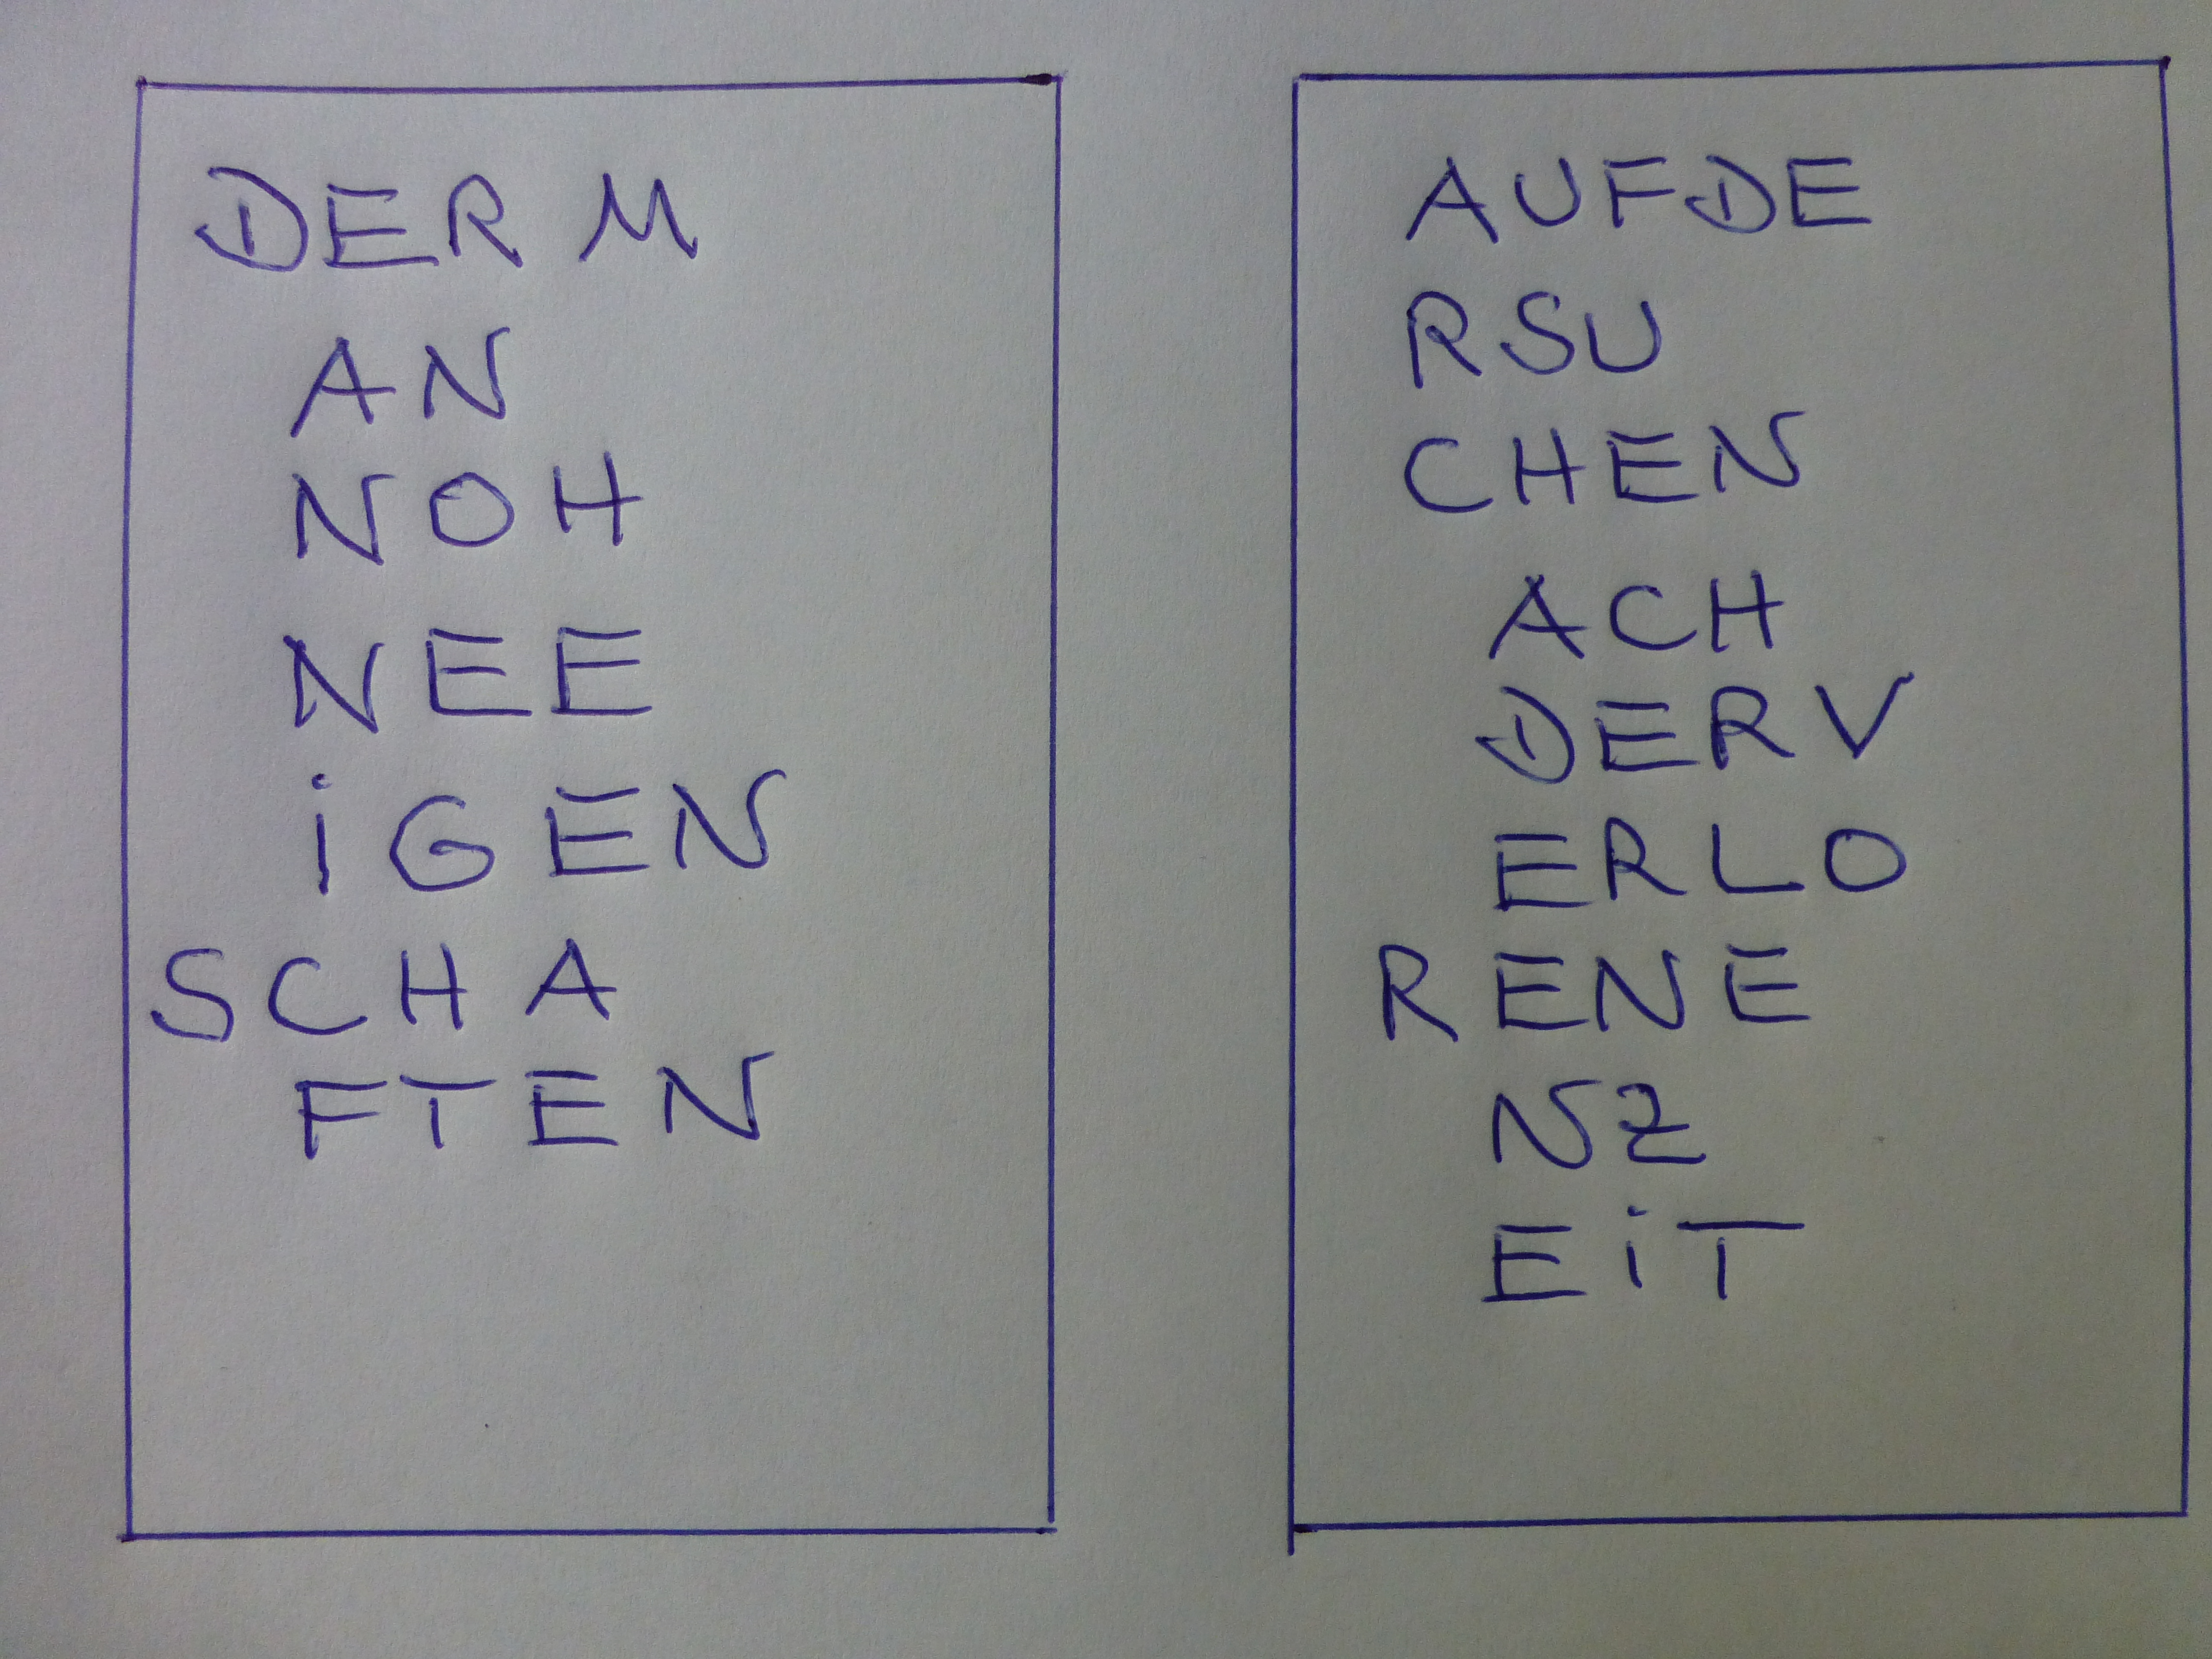 DER M
AN
NOH
NEE
iGEN
SCHA
FTEN
AUFDE
RSU
CHEN
ACH
DERV
ERLO
RENE
NZ
EiT